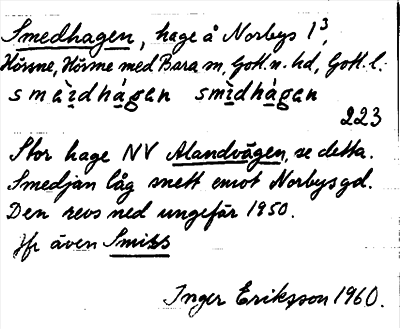 Smedhagen, hage å Norbys 1³,
Hörsne, Hörsne med Bara sn, Gotl. n. hd, Gotl. l.
smàidhágan smìdhágan
223
Stor hage NV Alandvägen, se detta.
Smedjan låg snett emot Norbysgd.
Den revs ned ungefär 1950.
Jfr även Smiss
Inger Eriksson 1960.